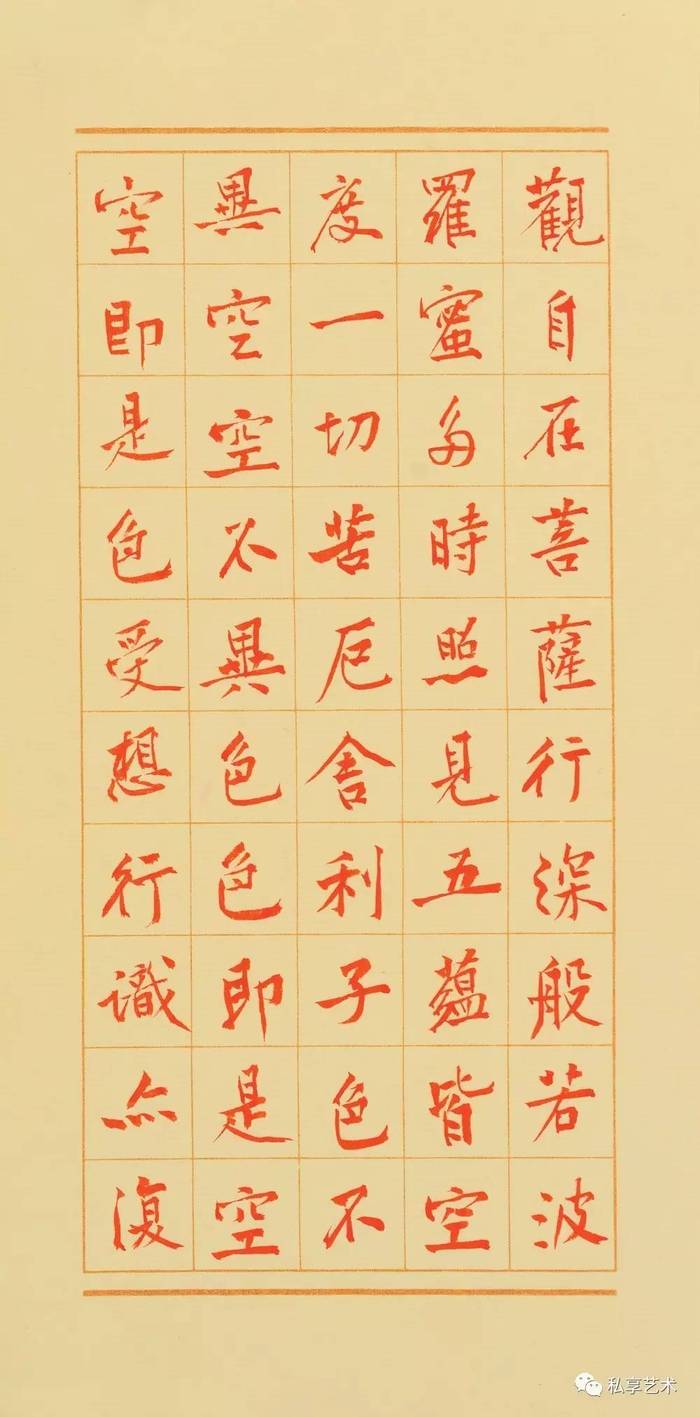 觀自在菩薩行深般若波
羅蜜多時照見五蘊皆空
度一切苦厄舍利子色不
異空空不異色色即是空
空即是色受想行識亦復
私享艺术